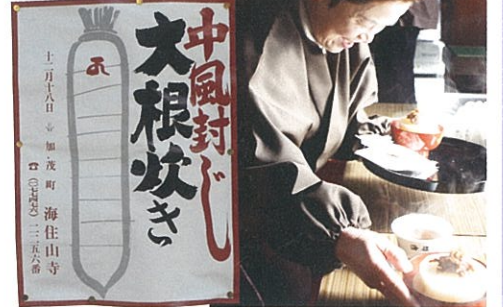 中風封じ
大根炊き
十二月十八日 加・茂町 海住山寺
☎(〇七七四七六)二二五六番